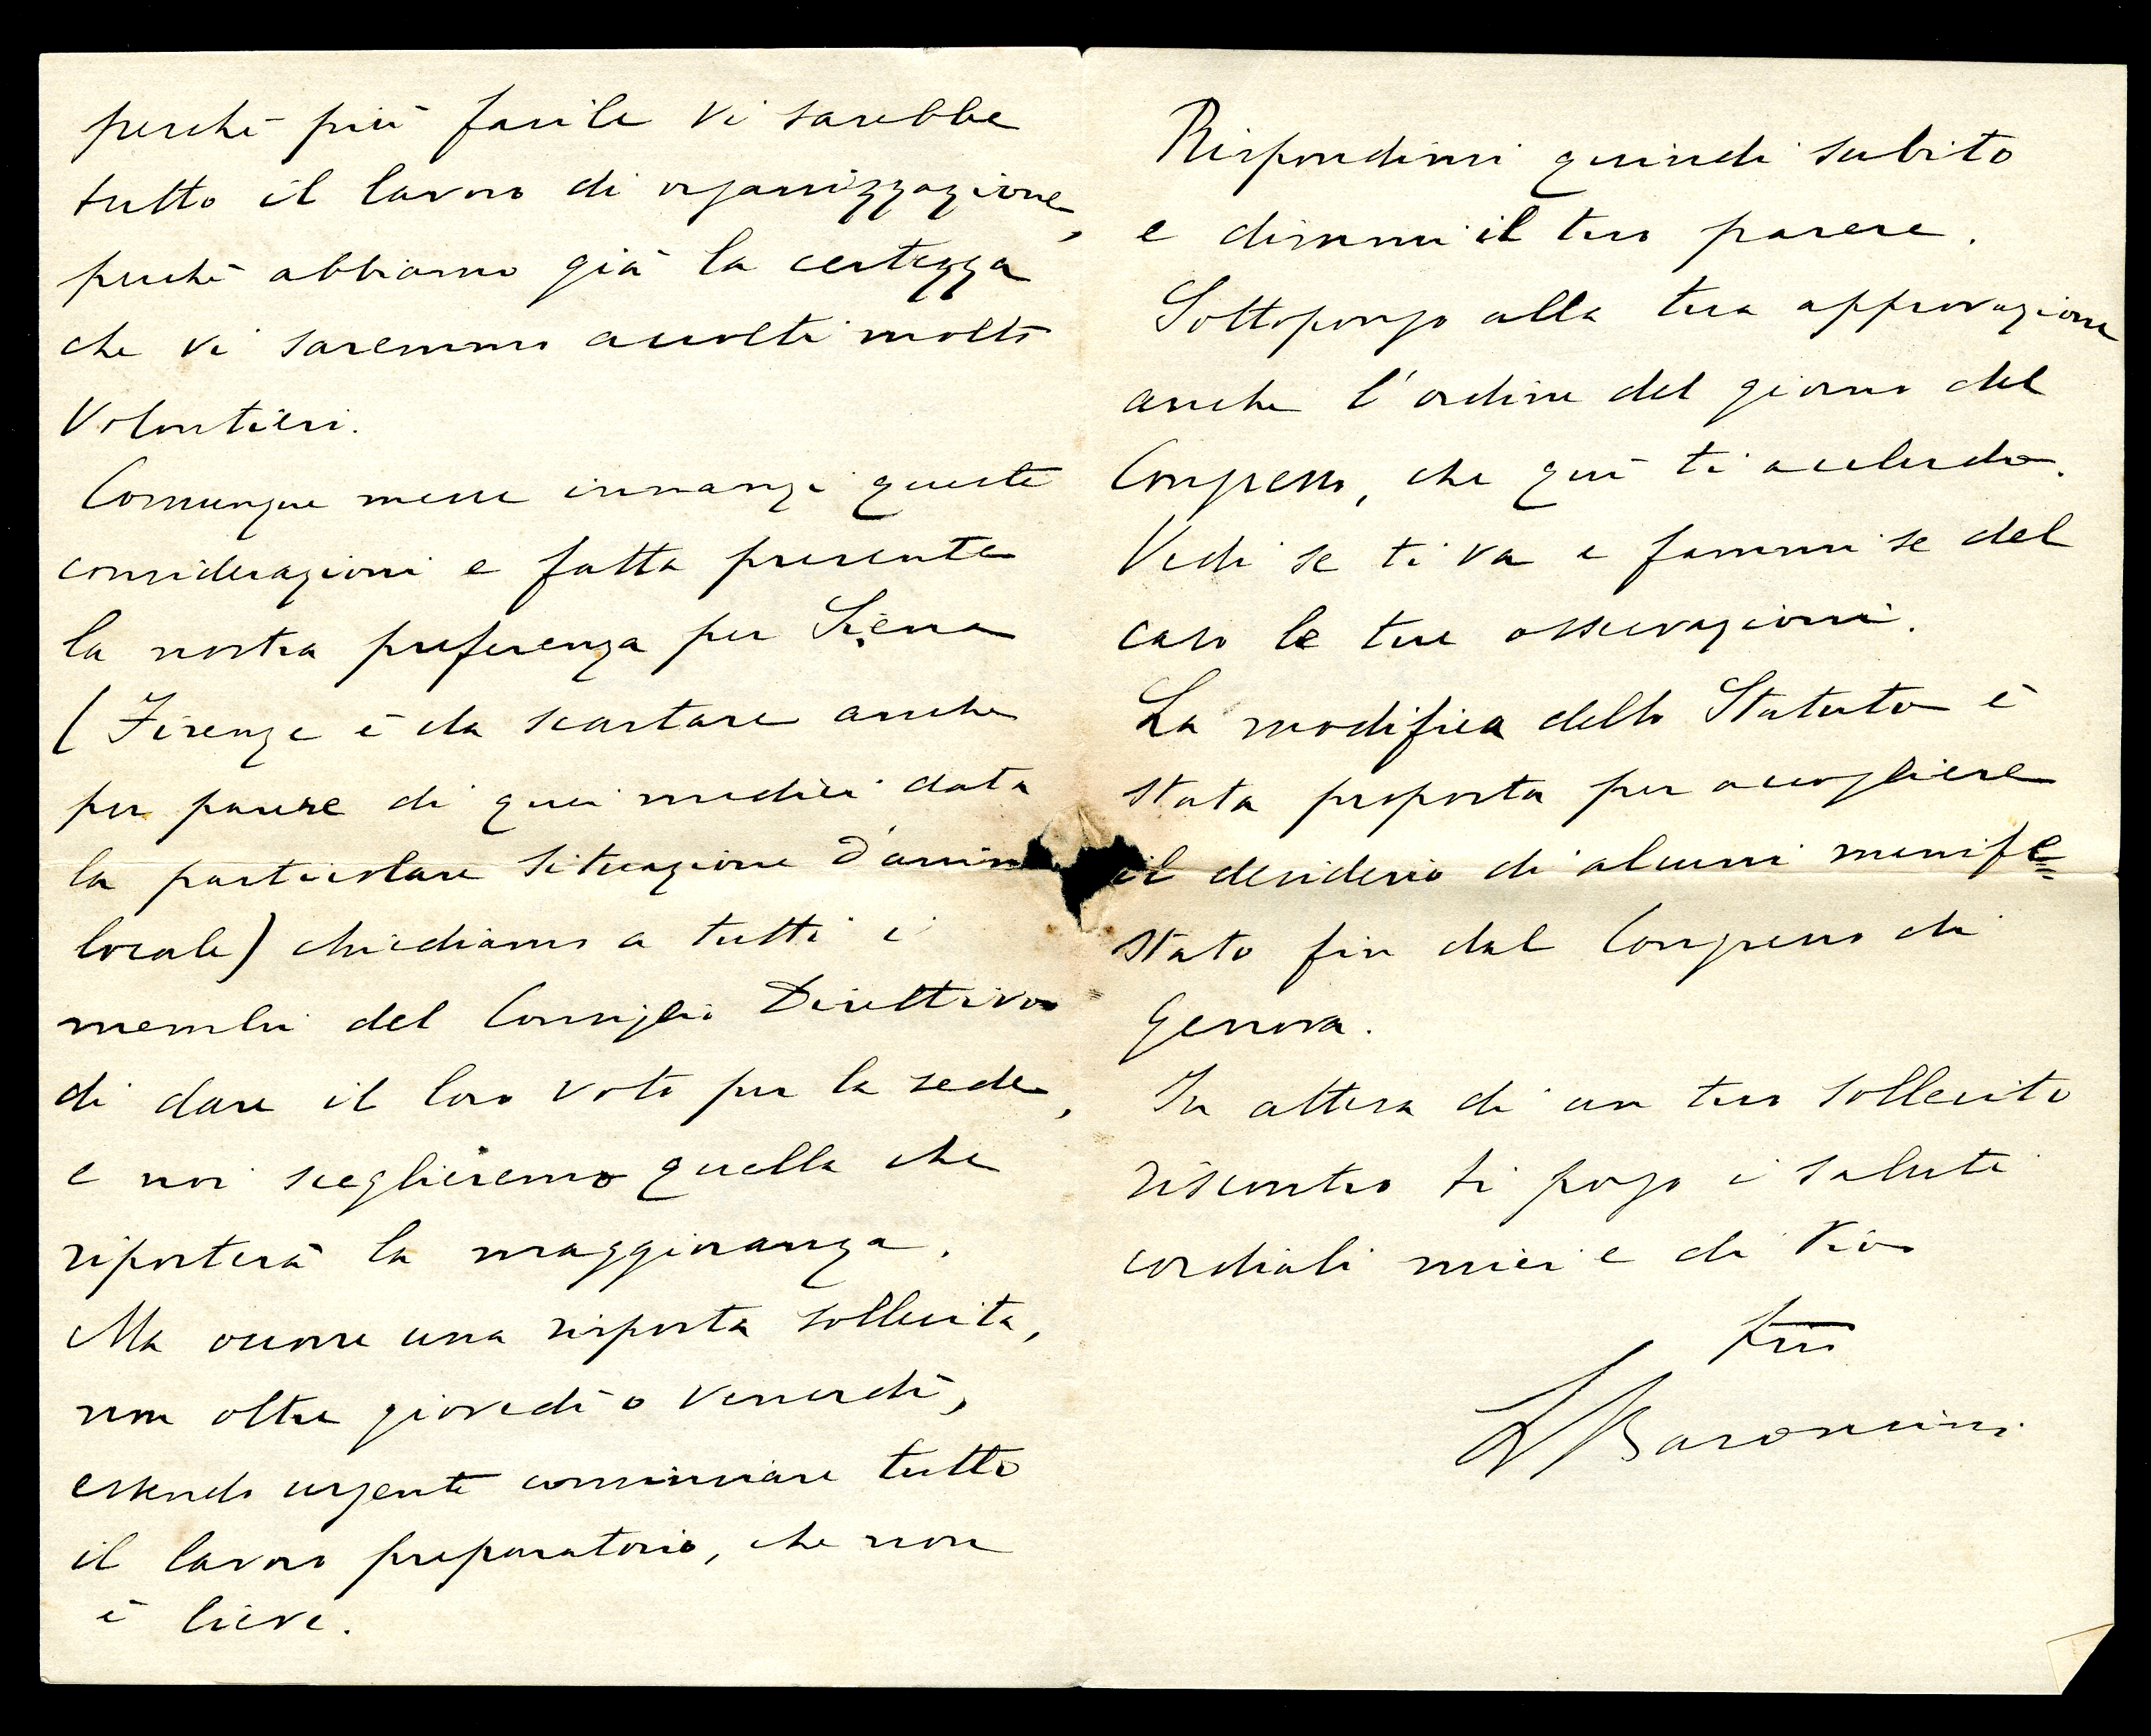 perchè più facile vi sarebbe
tutto il lavoro di organizzazione,
perchè abbiamo già la certezza
che vi saremmo accolti molto
volontieri.
Comunque messe innanzi queste
considerazioni e fatta presente
la nostra preferenza per Siena
(Firenze è da scartare anche
per parere di quei medici data
la particolare situazione d'anim
locale) chiediamo a tutti i
membri del Consiglio Direttivo
di dare il loro voto per la sede,
e noi sceglieremo quella che
riporterà la maggioranza.
Ma occorre una risposta sollecita,
non oltre giovedì o venerdì,
essendo urgente cominciare tutto
il lavoro preparatorio, che non
è lieve.
Rispondimi quindi subito
e dimmi il tuo parere.
Sottopongo alla tua approvazione
anche l'ordine del giorno del
Congresso, che quì ti accludo.
Vedi se ti va e fammi se del
caso le tue osservazioni.
La modifica dello Statuto è
stata proposta per accogliere
il desiderio di alcuni manife=
stato fin dal Congresso di
Genova.
In attesa di un tuo sollecito
riscontro ti porgo i saluti
cordiali miei e di Pio
tuo
L Baroncini